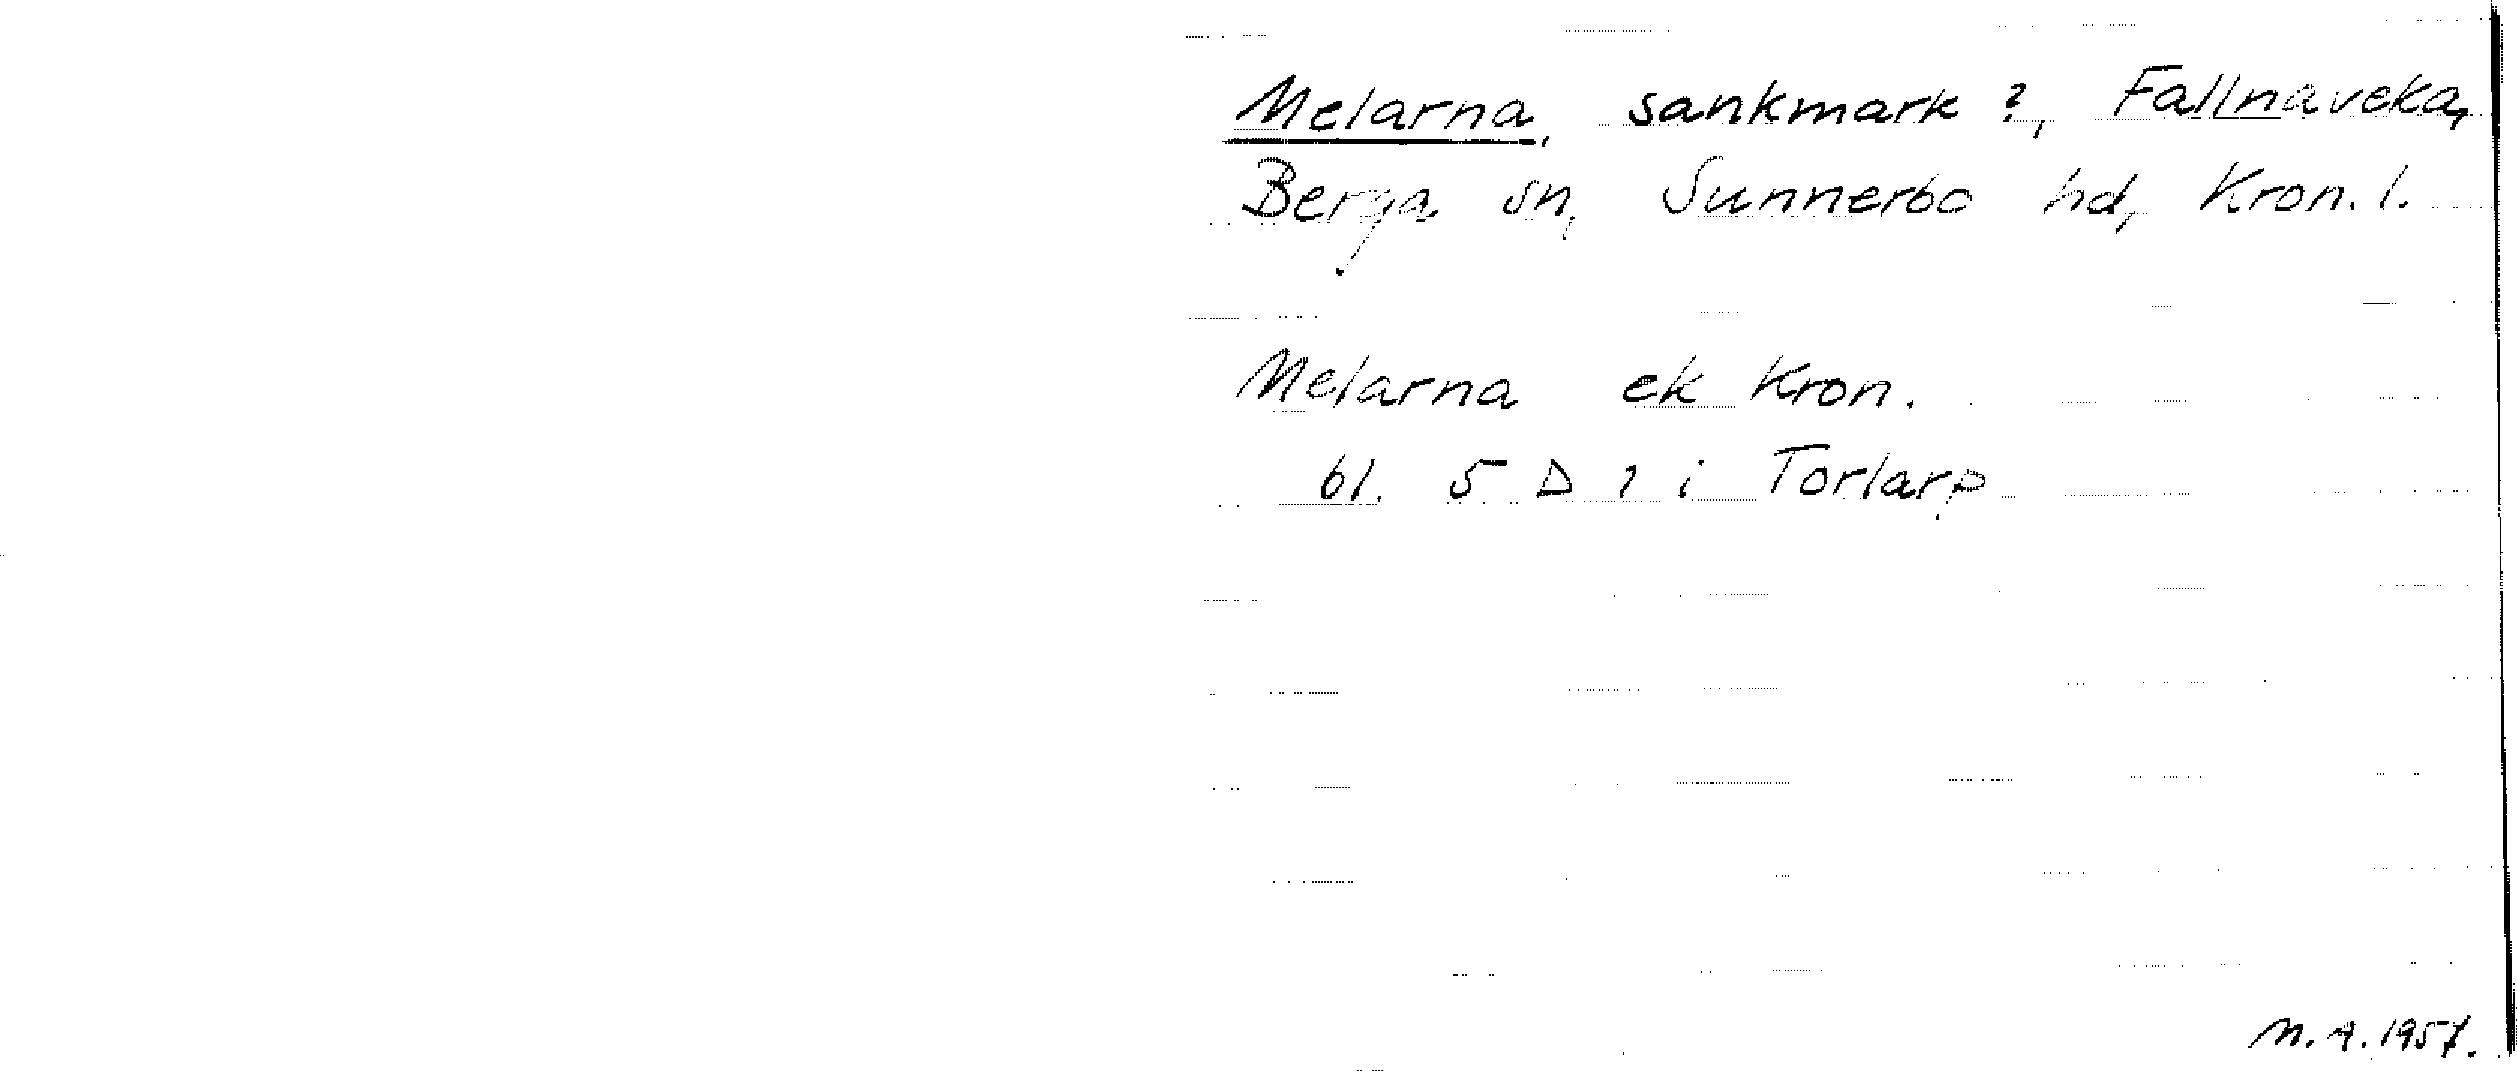 Melarna, sankmark ?, Fallnaveka,
Berga sn, Sunnerbo hd, Kron. l.
Melarna ek Kron.
bl. 5 D 1 i Torlarp
M.A. 1957.